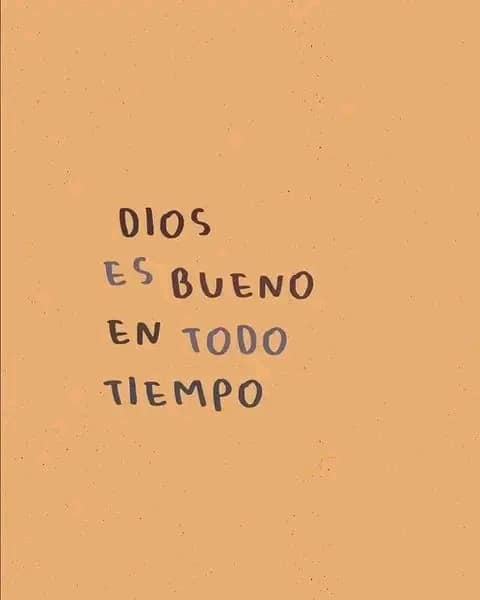 DIOS
ES BUENO
EN TODO
TIEMPO